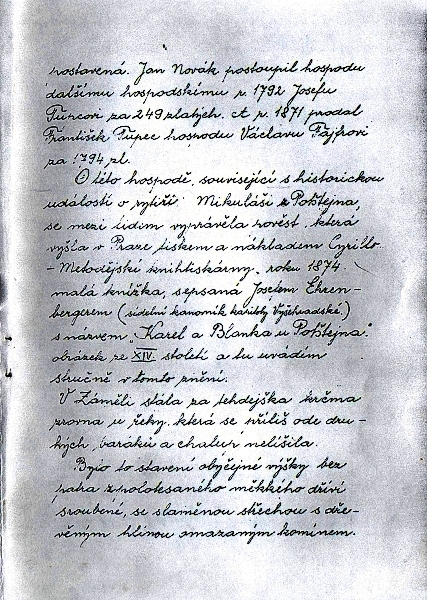 postavená. Jan Novák postoupil hospodu
dalšímu hospodskému r. 1792 Josefu
Tupcovi za 249 zlatých. A r. 1871 prodal
František Tupec hospodu Václavu Fajfrovi
za 1794 zl.
O této hospodě, související s historickou
událostí o rytíři Mikuláši z Potštejna,
se mezi lidem vyprávěla pověst, která
vyšla v Praze tiskem a nákladem Cyrillo
-Metodějské knihtiskárny, roku 1874
malá knížka, sepsaná Josefem Ehren-
bergerem (sídelní kanovník kapitoly Vyšehradské)
s názvem „Karel a Blanka u Potštejna“
obrázek ze XIV. století a tu uvádím
stručně v tomto znění.
V Záměli stála za tehdejška krčma
zrovna u řeky, která se příliš ode dru-
hých, baráků a chalup nelišila.
Bylo to stavení obyčejné výšky bez
patra z polotesaného měkkého dříví
sroubené, se slaměnou střechou s dře-
věným hlínou omazaným komínem.